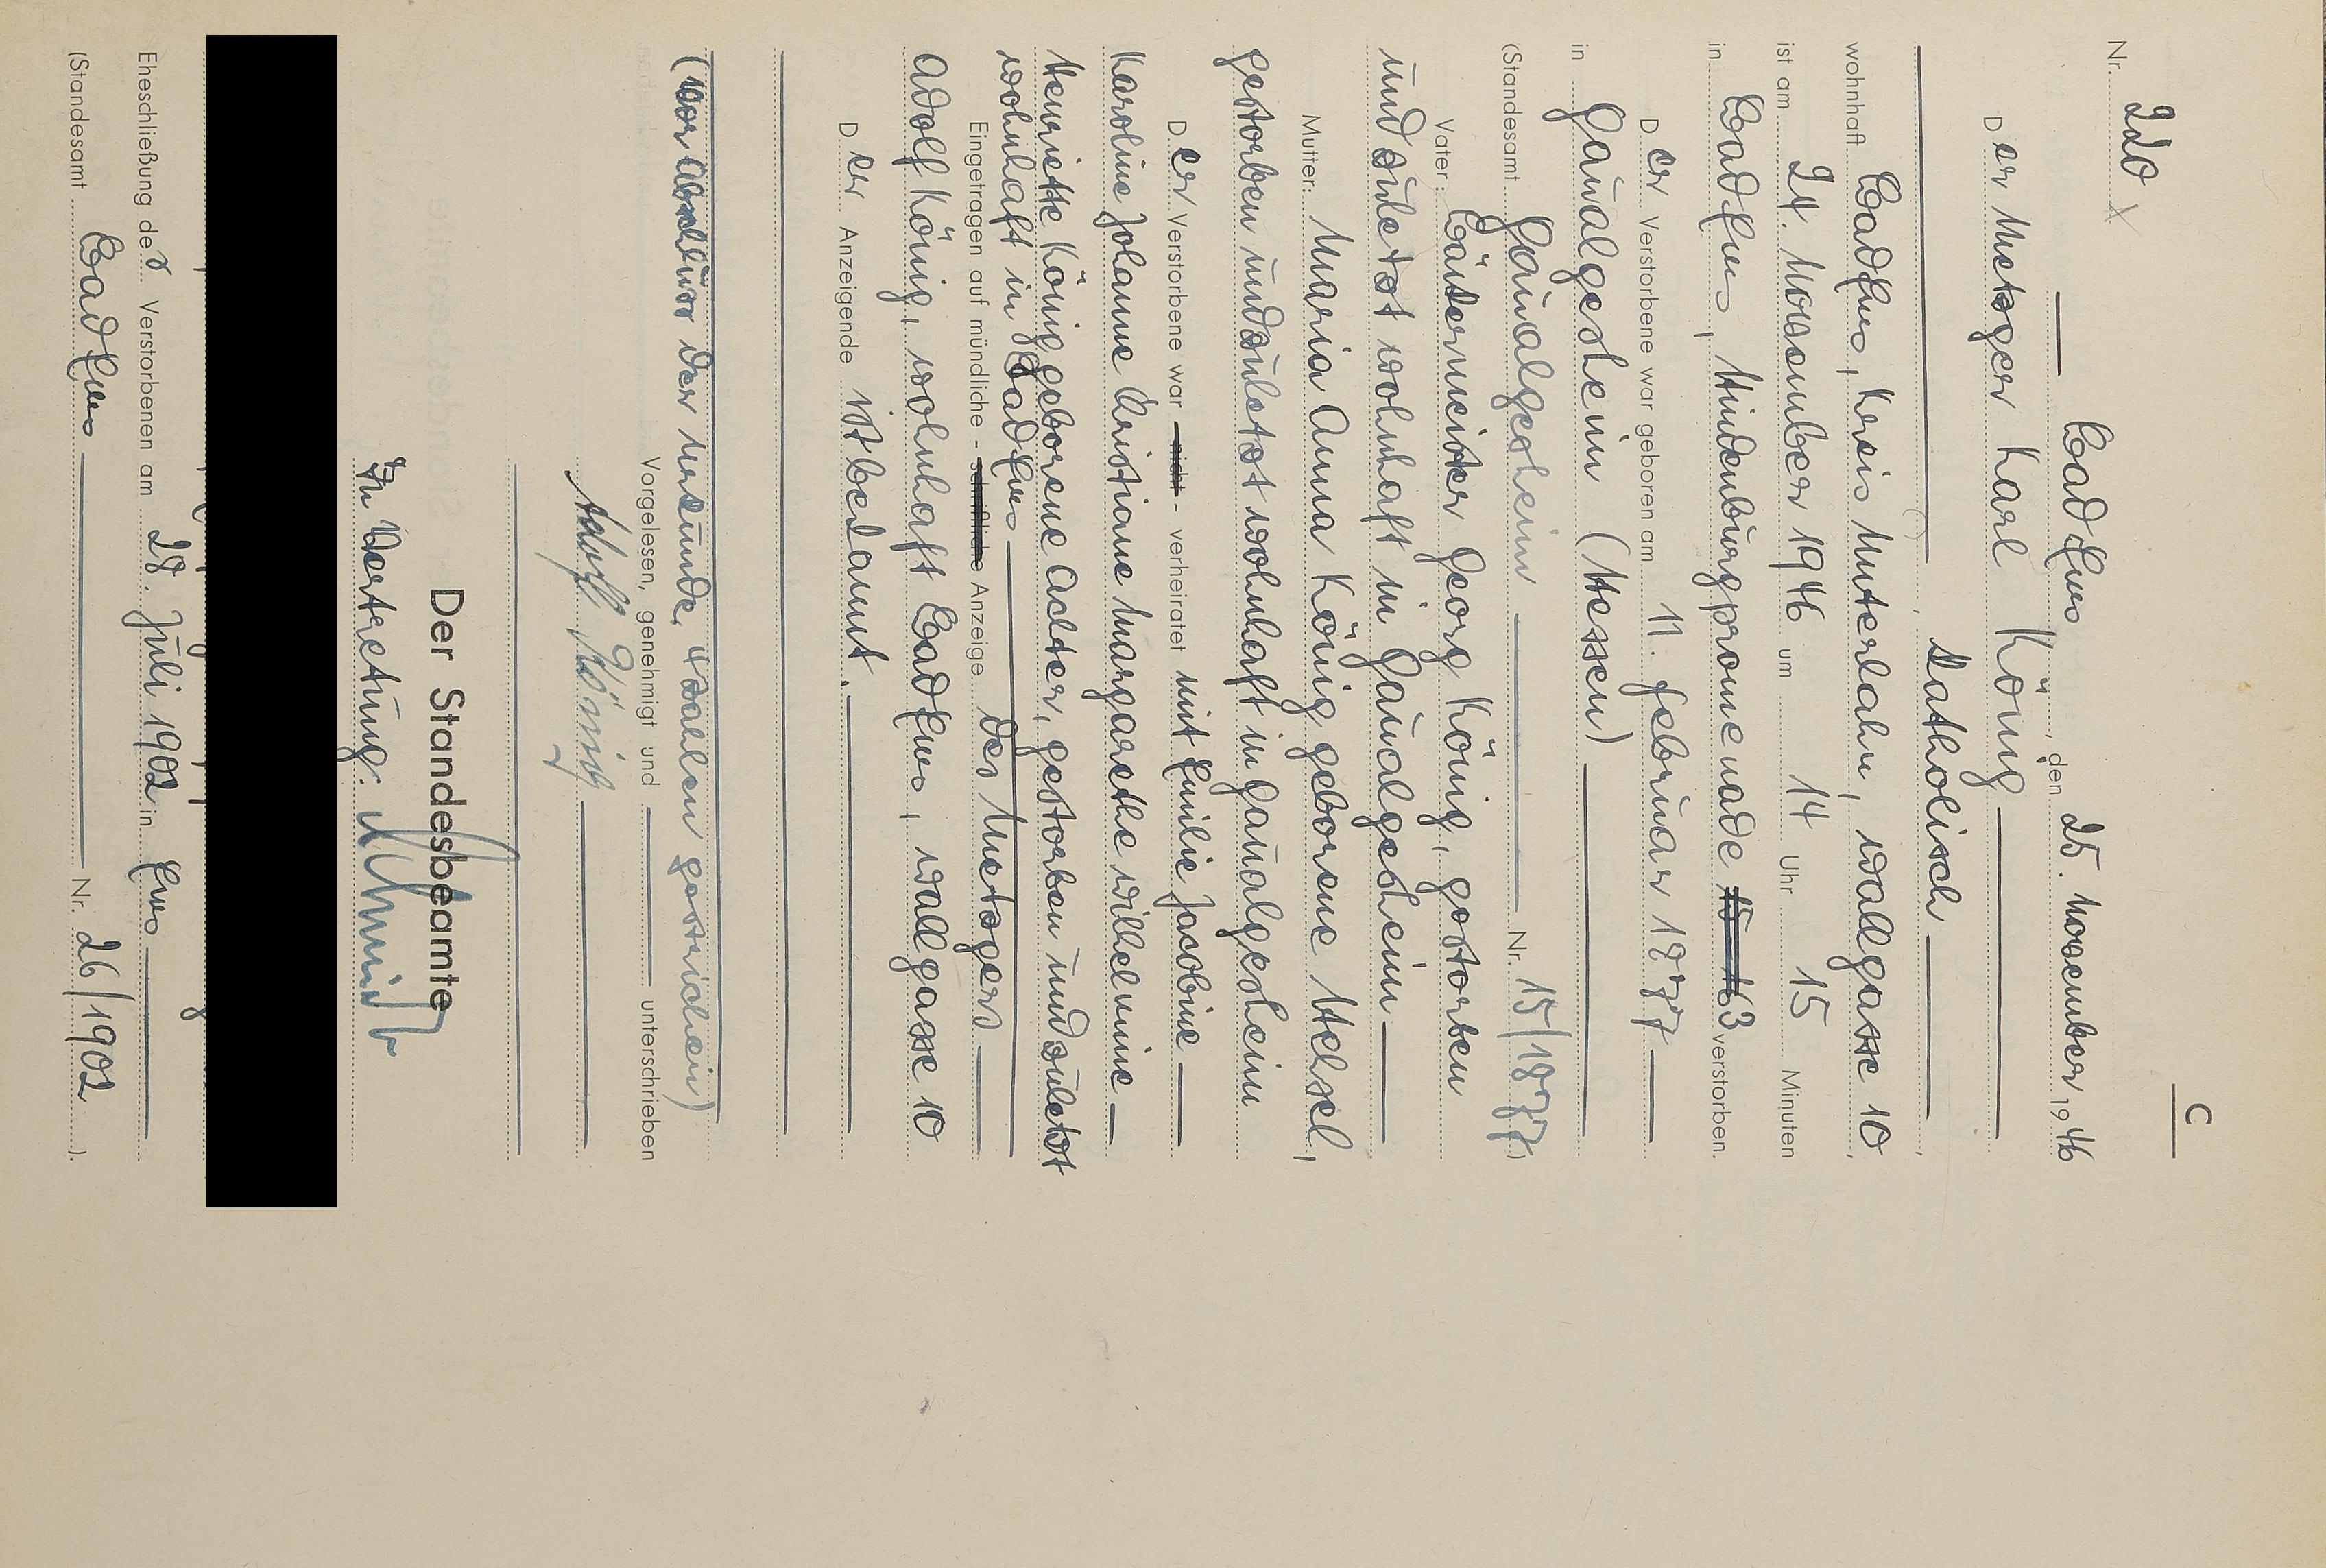 C
Nr. 220
Bad Ems, den 25. November 1946
Der Metzger Karl König
katholisch
wohnhaft Bad Ems, Kreis Unterlahn, Wallgasse 10
ist am 24. November 1946 um 14 Uhr 15 Minuten
in Bad Ems, Hindenburgpromenade 3 verstorben.
Der Verstorbene war geboren am 11. Februar 1877
in Gaualgesheim (Hessen)
(Standesamt Gaualgesheim Nr. 15/1877)
Vater: Bäckermeister Georg König, gestorben
und zuletzt wohnhaft in Gaualgesheim
Mutter: Maria Anna König geborene Helsel,
gestorben und zuletzt wohnhaft in Gaualgesheim
Der Verstorbene war - nicht - verheiratet mit Emilie Jacobine
Karoline Johanne Kristiane Margarethe Wilhelmine
Henriette König geborene Acker, gestorben und zuletzt
wohnhaft in Bad Ems
Eingetragen auf mündliche - schriftliche Anzeige des Metzgers
Adolf König, wohnhaft Bad Ems, Wallgasse 10
Der Anzeigende ist bekannt.
(vor Abschluss der Urkunde, 4 Zahlen gestrichen)
Vorgelesen, genehmigt und unterschrieben
Adolf König
Der Standesbeamte
In Vertretung: Schmidt
Eheschließung des Verstorbenen am 28. Juli 1902 in Ems
(Standesamt Bad Ems Nr. 26/1902).